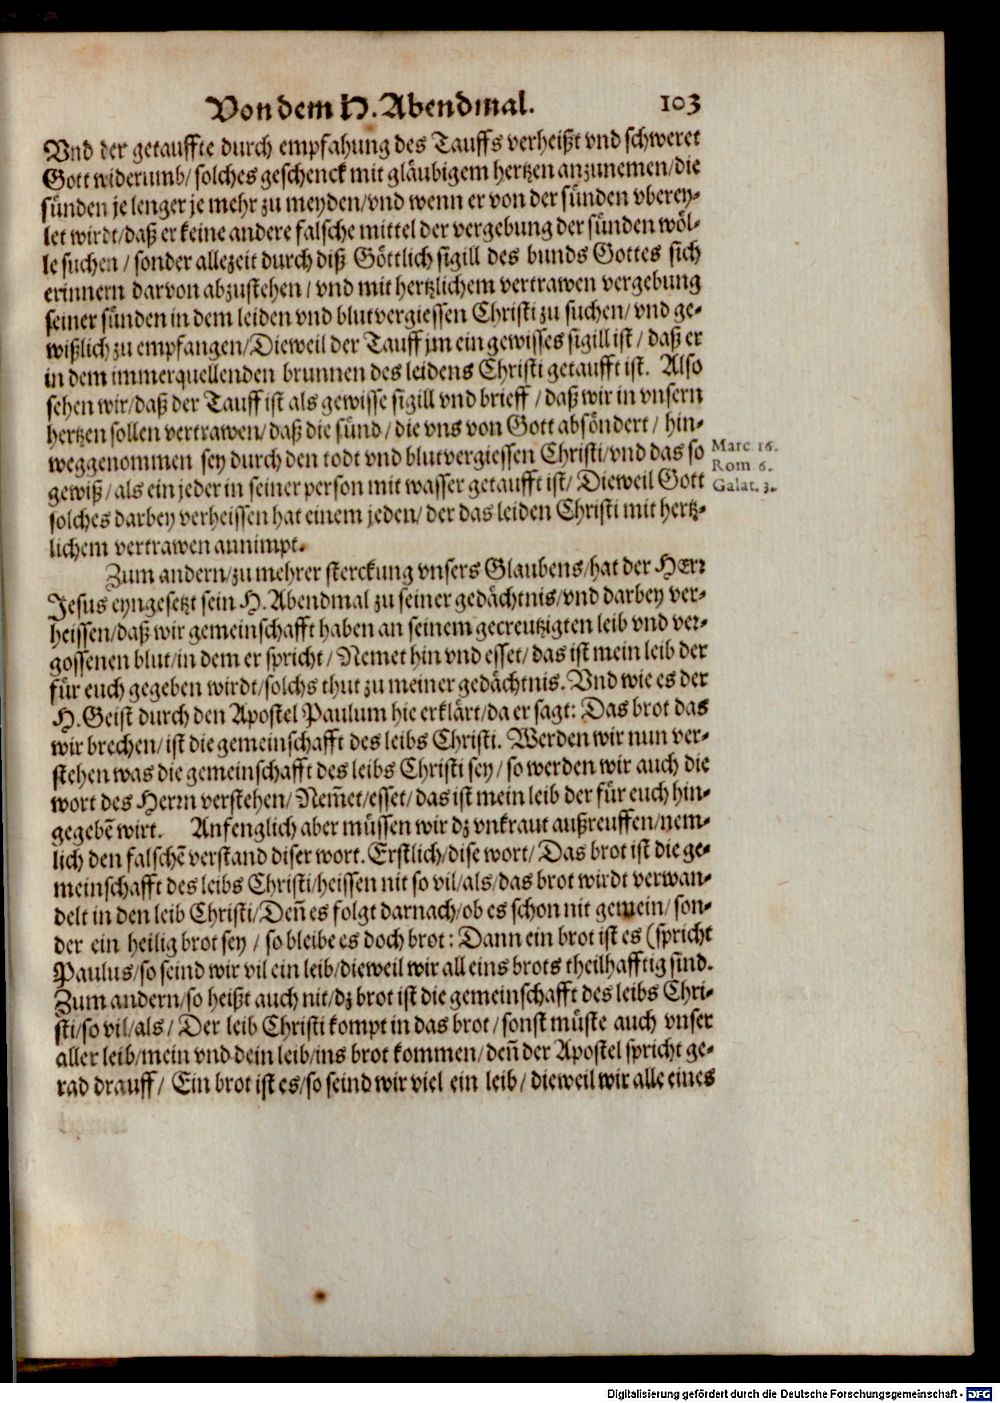 Von dem H. Abendmal. 103
Vnd der getauffte durch empfahung des Tauffs verheißt vnd schweret
Gott widerumb/ solches geschenck mit gläubigem hertzen anzunemen/ die
sünden je lenger je mehr zu meyden/ vnd wenn er von der sünden vberey-
let wirdt/ daß er keine andere falsche mittel der vergebung der sünden wöl-
le suchen/ sonder allezeit durch diß Göttlich sigill des bunds Gottes sich
erinnern darvon abzustehen/ vnd mit hertzlichem vertrawen vergebung
seiner sünden in dem leiden vnd blutvergiessen Christi zu suchen/ vnd ge-
wißlich zu empfangen/ Dieweil der Tauff jm ein gewisses sigill ist/ daß er
in dem immerquellenden brunnen des leidens Christi getaufft ist. Also
sehen wir/ daß der Tauff ist als gewisse sigill vnd brieff/ daß wir in vnsern
hertzen sollen vertrawen/ daß die sünd/ die vns von Gott absöndert/ hin-
weggenommen sey durch den todt vnd blutvergiessen Christi/ vnd das so
gewiß/ als ein jeder in seiner person mit wasser getaufft ist/ Dieweil Gott
solches darbey verheissen hat einem jeden/ der das leiden Christi mit hertz-
lichem vertrawen annimpt.
Marc 16.
Rom 6.
Galat. 3.
Zum andern/ zu mehrer sterckung vnsers Glaubens/ hat der HErr
Jesus eyngesetzt sein H. Abendmal zu seiner gedächtnis/ vnd darbey ver-
heissen/ daß wir gemeinschafft haben an seinem gecreutzigten leib vnd ver-
gossenen blut/ in dem er spricht/ Nemet hin vnd esset/ das ist mein leib der
für euch gegeben wirdt/ solchs thut zu meiner gedächtnis. Vnd wie es der
H. Geist durch den Apostel Paulum hie erklärt/ da er sagt: Das brot das
wir brechen/ ist die gemeinschafft des leibs Christi. Werden wir nun ver-
stehen was die gemeinschafft des leibs Christi sey/ so werden wir auch die
wort des Herrn verstehen/ Nem̃et/ esset/ das ist mein leib der für euch hin-
gegebẽ wirt. Anfenglich aber müssen wir dz vnkraut außreuffen/ nem-
lich den falschẽ verstand diser wort. Erstlich/ dise wort/ Das brot ist die ge-
meinschafft des leibs Christi/ heissen nit so vil/ als/ das brot wirdt verwan-
delt in den leib Christi/ Deñ es folgt darnach/ ob es schon nit gemein/ son-
der ein heilig brot sey/ so bleibe es doch brot: Dann ein brot ist es (spricht
Paulus/ so seind wir vil ein leib/ dieweil wir all eins brots theilhafftig sind.
Zum andern/ so heißt auch nit/ dz brot ist die gemeinschafft des leibs Chri-
sti/ so vil/ als/ Der leib Christi kompt in das brot/ sonst müste auch vnser
aller leib/ mein vnd dein leib/ ins brot kommen/ deñ der Apostel spricht ge-
rad drauff/ Ein brot ist es/ so seind wir viel ein leib/ dieweil wir alle eines
Digitalisierung gefördert durch die Deutsche Forschungsgemeinschaft - DFG